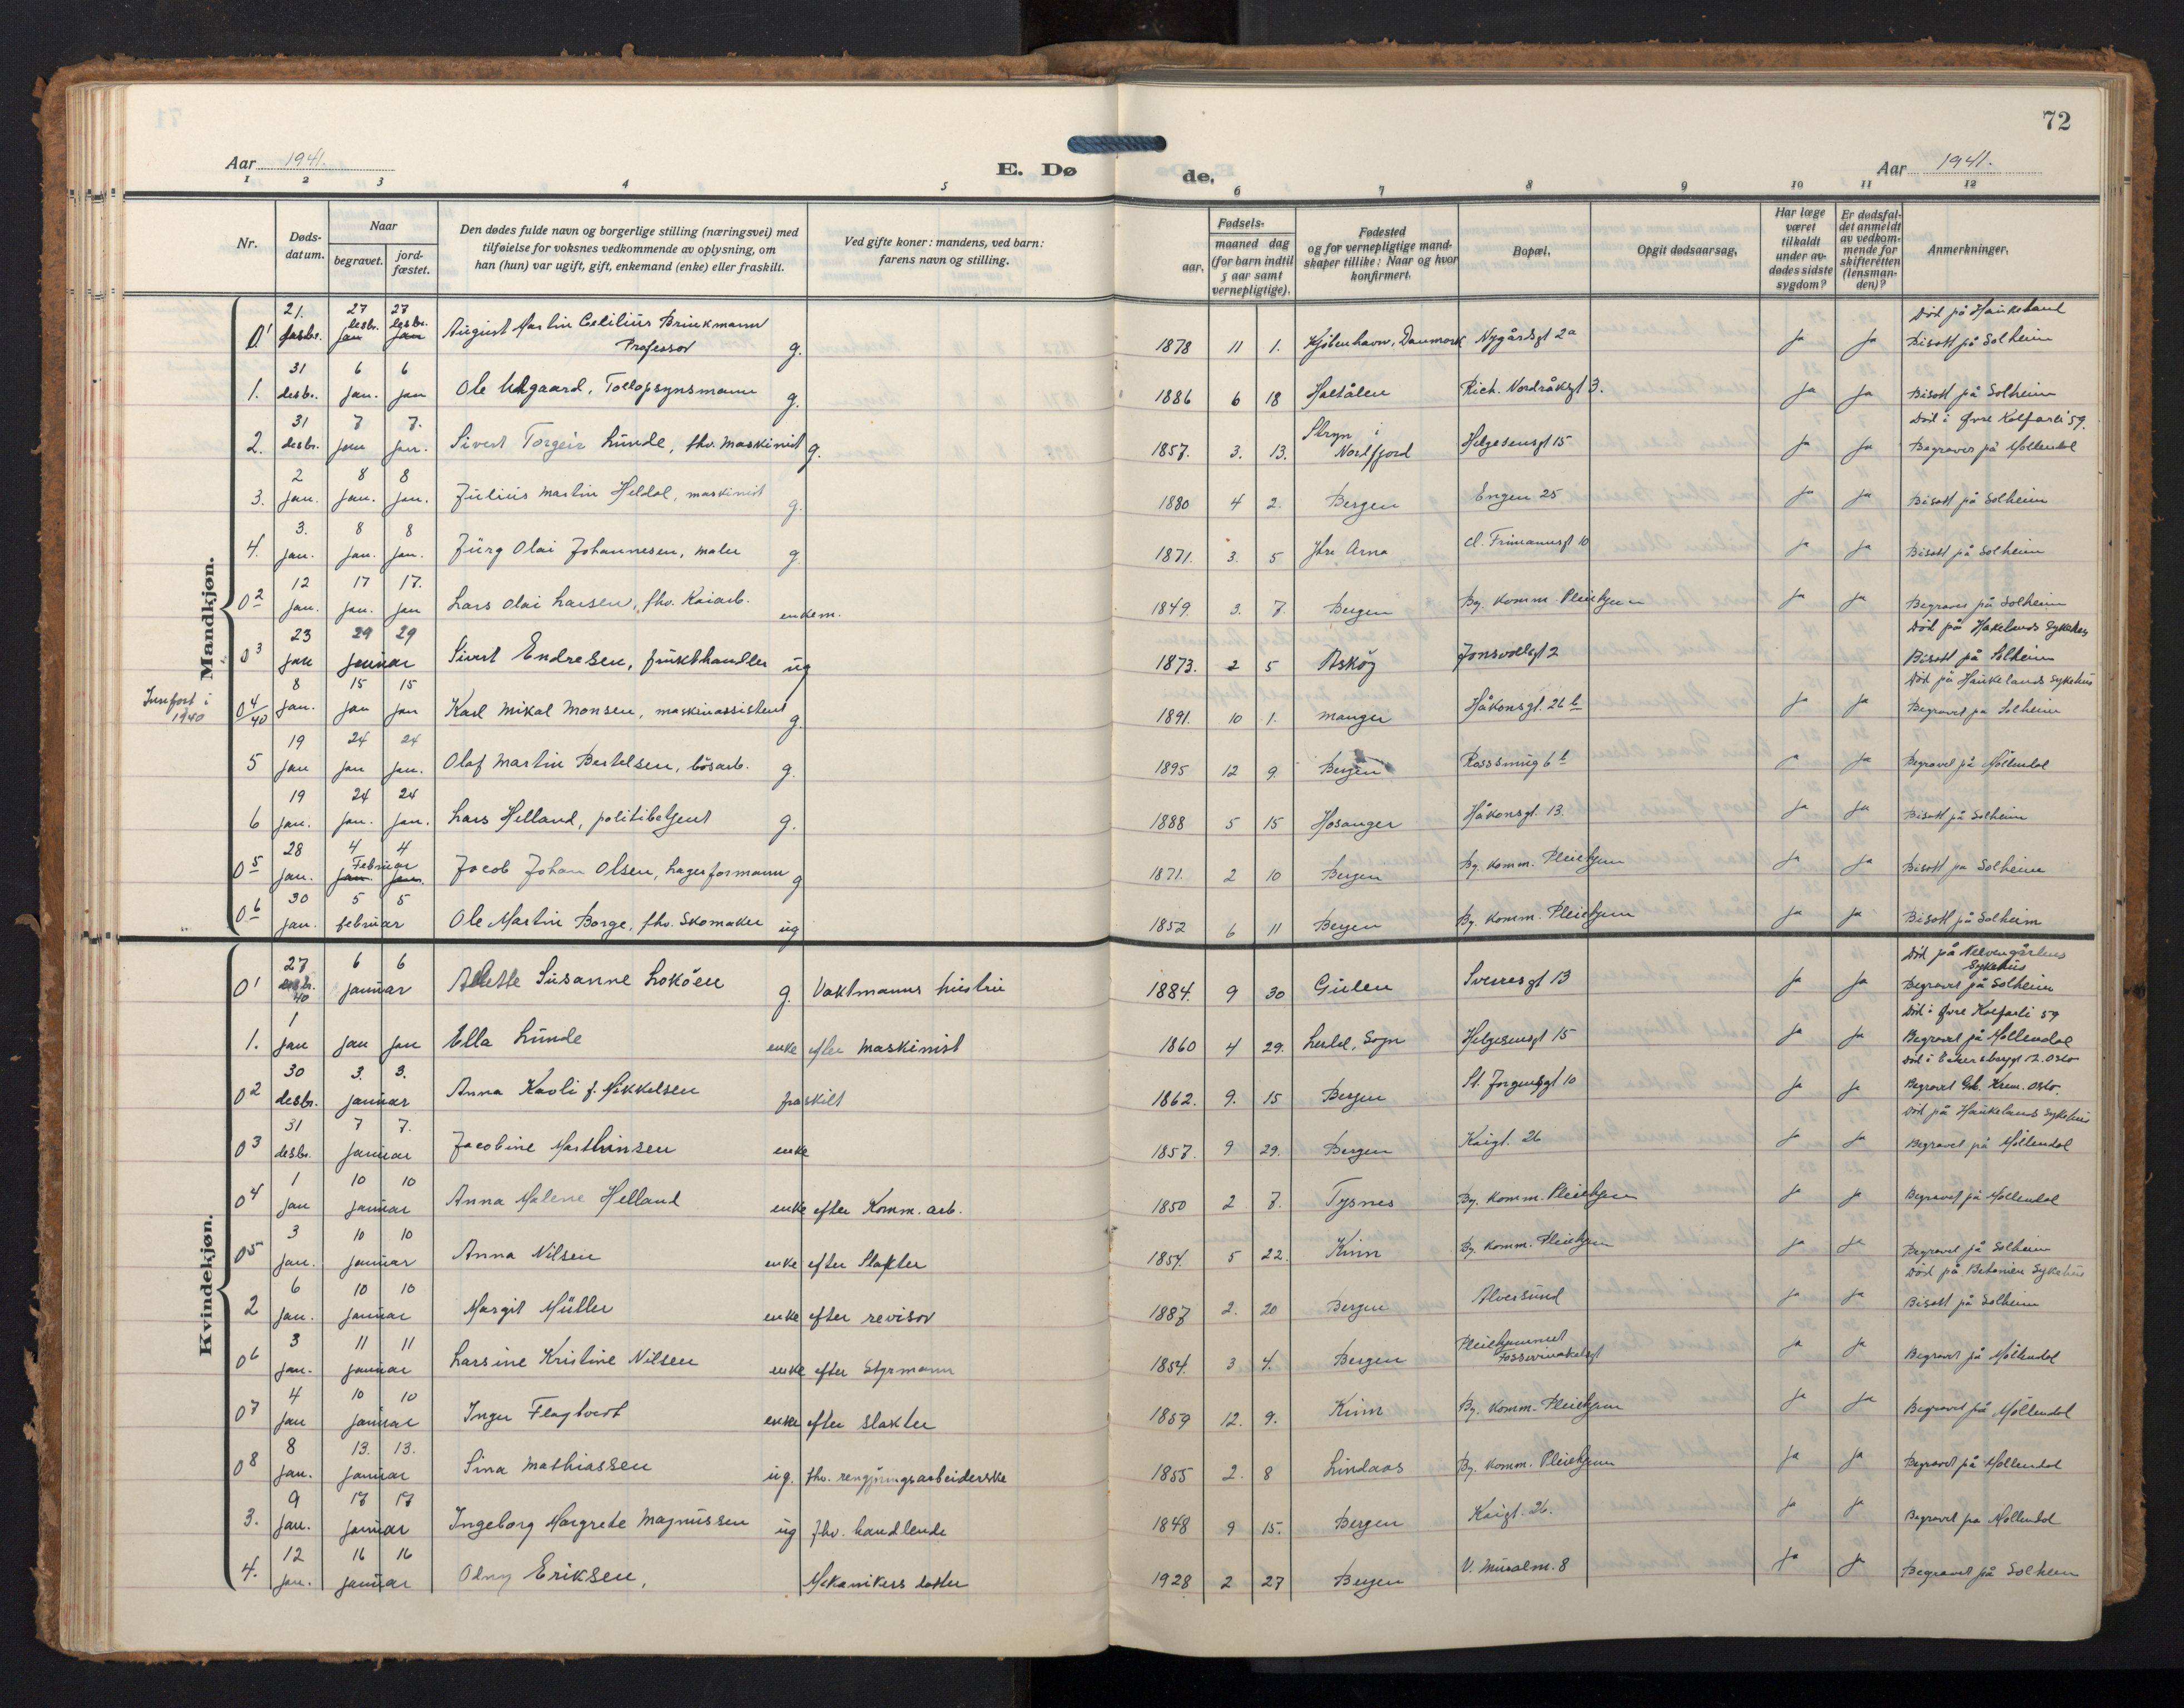 72
Aar 1941.
E. Dø
de.
Aar 1941.
1 2 3 4 5 6 7 8 9 10 11 12
Nr.
Døds-
datum.
Naar
begravet.
jord-
fæstet.
Den dødes fulde navn og borgerlige stilling (næringsvei) med
tilføielse for voksnes vedkommende av oplysning, om
han (hun) var ugift, gift, enkemand (enke) eller fraskilt.
Ved gifte koner: mandens, ved barn:
farens navn og stilling.
Fødsels-
aar.
maaned dag
(for barn indtil
5 aar samt
vernepligtige).
Fødested
og for vernepligtige mand-
skaper tillike: Naar og hvor
konfirmert.
Bopæl.
Opgit dødsaarsag.
Har læge
været
tilkaldt
under av-
dødes sidste
sygdom?
Er dødsfal-
det anmeldt
av vedkom-
mende for
skifteretten
(lensman-
den)?
Anmerkninger.
Mandkjøn.
21. 27 27 Død på Haukeland
01 desbr. desbr. desbr. August Martin Cecilius Brinkmann
jan jan Professor g. 1878 11 1. Kjøbenhavn, Danmark Nygårdsgt 2a Ja Ja Bisatt på Solheim
31 6 6
1. desbr. jan. jan Ole Utgaard, Tollopsynsmann g. 1886 6 18 Holtålen Rich. Nordråksgt 3. Ja Ja Bisatt på Solheim
31 7 7. Død i Øvre Kalfarli 59.
2. desbr. jan jan. Sivert Torgeir Lunde, fhv. maskinist g. 1857. 3. 13. Stryn i Nordfjord Helgesensgt 15 Ja Ja Begravet på Møllendal
2 8 8
3. jan. jan. jan. Julius Martin Heldal, maskinist g. 1880 4 2. Bergen Engen 25 Ja Ja Bisatt på Solheim
3. 8 8
4. jan. jan. jan. Jürg Olai Johannesen, maler g. 1871. 3. 5 Ytre Arna Cl. Frimannsgt 10 Ja Ja Bisatt på Solheim
12 17 17.
02 jan. jan. jan Lars Olai Larsen, fhv. Kaiarb. enkem. 1849. 3. 7. Bergen By. komm. Pleiehjem Ja Ja Begravet på Solheim
23 29 29 Død på Haukelands Sykehus
03 jan januar Sivert Endresen, frukthandler ug 1873. 2 5 Askøy Jonsvollsgt 2 Bisatt på Solheim
8 15 15 Død på Haukelands Sykehus
Innført i
1940
04/40 jan. jan jan Karl Mikal Monsen, maskinassistent g. 1891. 10 1. Manger Håkonsgt. 26 b Ja Ja Begravet på Solheim
19 24 24
5 jan jan jan. Olaf Martin Bertelsen, løsarb. g. 1895 12 9. Bergen Rosesmug 6 b Ja Begravet på Møllendal
19 24 24
6 jan. jan. jan. Lars Helland, politibetjent g. 1888 5 15 Hosanger Håkonsgt. 13. Ja Ja Bisatt på Solheim
28 4 4
05 jan. Februar jan. jan. Jacob Johan Olsen, Lagerformann g 1871. 2 10 Bergen By. komm. Pleiehjem Ja Ja Bisatt på Solheim
30 5 5
06 jan. februar Ole Martin Borge, fhv. Skomaker ug 1852 6 11 Bergen By. komm. Pleiehjem Ja Ja Bisatt på Solheim
Kvindekjøn.
27 6 6 Død på Nevengårdens
Sykehus
01 desbr. 40 januar Alette Susanne Lokøen g. Vaktmanns hustru 1884. 9 30 Gulen Sverresgt 13 Ja Ja Begravet på Solheim
1 Død i Øvre Kalfarli 59
1. jan jan jan Ella Lunde enke efter maskinist 1860 4 29. Lerdal, Sogn Helgesensgt 15 Ja Ja Begravet på Møllendal
30 3. 3. Død i Eckersbergt 12. Oslo
02 desbr. januar Anna Kavli f. Mikkelsen fraskilt 1862. 9. 15 Bergen St. Jørgensgt 10 Ja Ja Begravet Krem. Oslo.
31 7 7. Død på Haukelands Sykehus
03 desbr. januar Jacobine Marthinsen enke 1857. 9 29. Bergen Kaigt. 26 Ja Ja Begravet på Møllendal
1 10 10
04 jan januar Anna Malene Helland enke efter Komm. arb. 1850 2 7. Tysnes By. komm. Pleiehjem Ja Ja Begravet på Møllendal
3 10 10
05 jan. januar Anna Nilsen enke efter Slakter 1854. 5 22. Kinn By. komm. Pleiehjem Ja Ja Begravet på Solheim
6 10 10 Død på Betanien Sykehus
2 jan. januar Margit Müller enke efter revisor 1887 2. 20 Bergen Alversund Ja Ja Bisatt på Solheim
3 11 11
06 jan. januar Larsine Kristine Nilsen enke efter Styrmann 1854. 3 4. Bergen Pleiehjemmet
Fosswinckelsgt Ja Ja Begravet på Møllendal
4 10 10
07 jan januar Inger Flagtvedt enke efter slakter 1859 12. 9. Kinn By. komm. Pleiehjem Ja Ja Begravet på Møllendal
8 13. 13.
08 jan. januar Sina Mathiassen ug. fhv. rengjøringsarbeiderske 1855 2. 8 Lindaas By. komm. Pleiehjem Ja Ja Begravet på Møllendal
9 17 17
3. jan. januar Ingeborg Margrete Magnussen ug fhv. handlende 1848 9 15. Bergen Kaigt. 26. Ja Ja Begravet på Møllendal
12 16 16
4. jan. januar Odny Eriksen, Mekanikers datter 1928 2 27 Bergen V. Muralm. 8 Ja Ja Begravet på Solheim